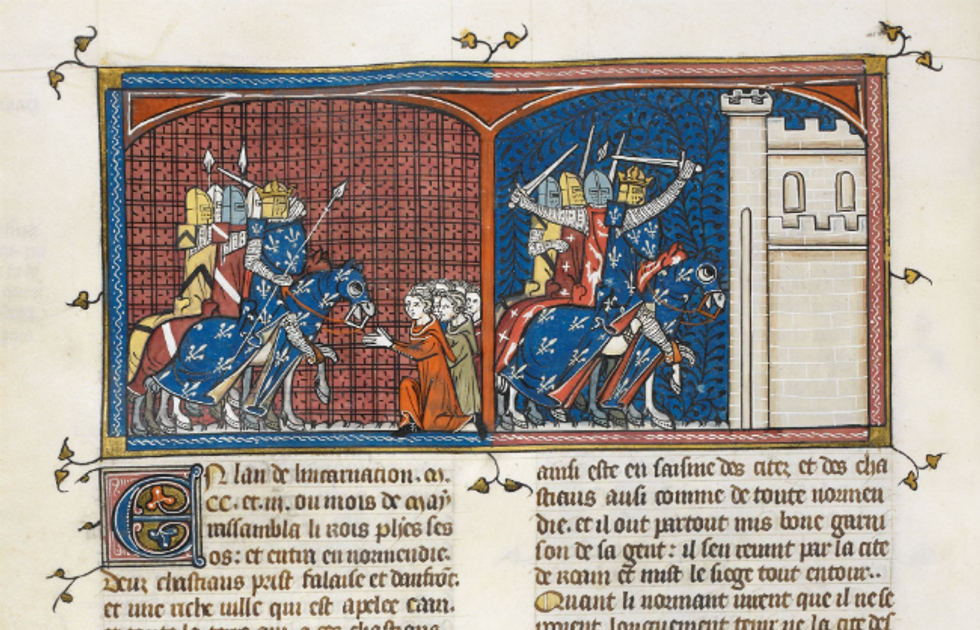 En lan de lincarnation. m.
CC. et. iii. ou mois de may
rassambla li rois phes ses
os: et entra en normendie.
Deux chastiaus prist falaise et danfrōt.
et une riche uille qui est apelee caam.
et toute la terre qui a ces chastiaus
ainsi este en saisine des citez et des cha
stiaus ausi comme de toute normen
die. et il out partout mis bone garni
son de sa gent: il sen reuint par la cite
de roam et mist le siege tout entour..
Quant li normant uirent que il ne se
porent longuement tenir ne la cite def